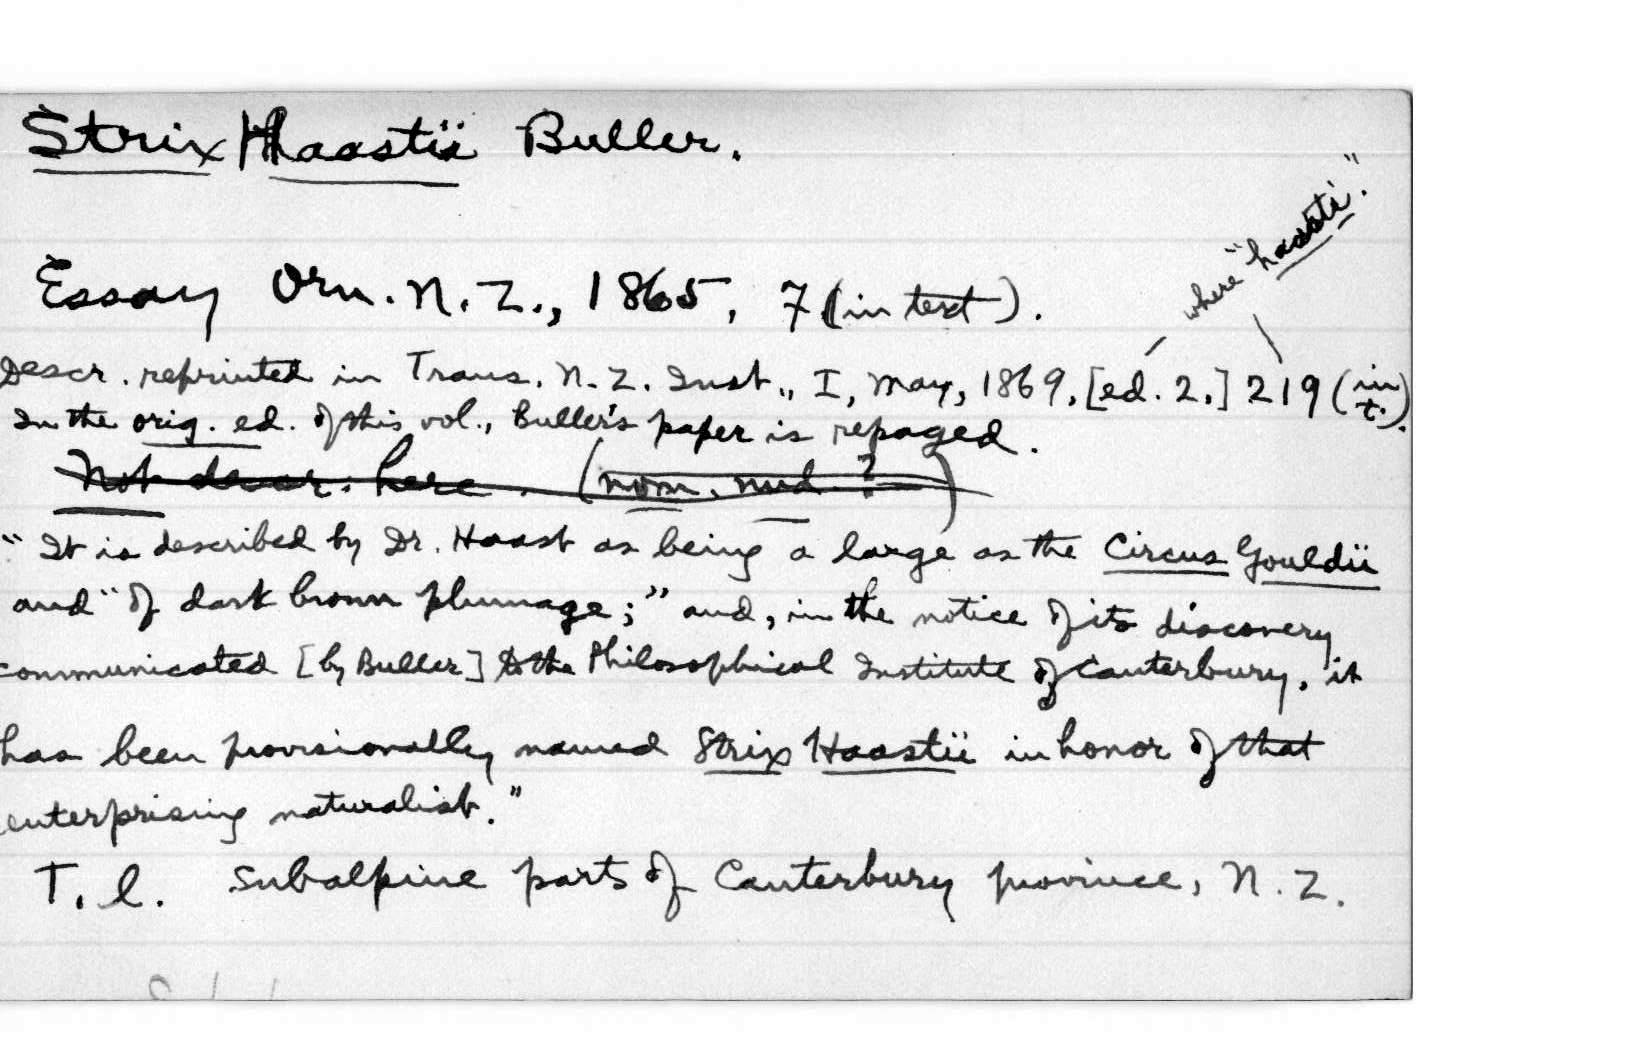 Strix Haastii Buller.
where "haasti."
Essay Orn. N.Z., 1865, 7 (in text).
Descr. reprinted in Trans. N.Z. Inst., I, May, 1869, [ed. 2,] 219 (in t.).
In the orig. ed. of this vol., Buller's paper is repaged.
Not descr. here. (nom. nud.?)
"It is described by Dr. Haast as being a large as the Circus Gouldii
and "of dark brown plumage;" and, in the notice of its discovery
communicated [by Buller] to the Philosophical Institute of Canterbury, it
has been provisionally named Strix Haastii in honor of that
enterprising naturalist."
T. l. Subalpine parts of Canterbury province, N.Z.